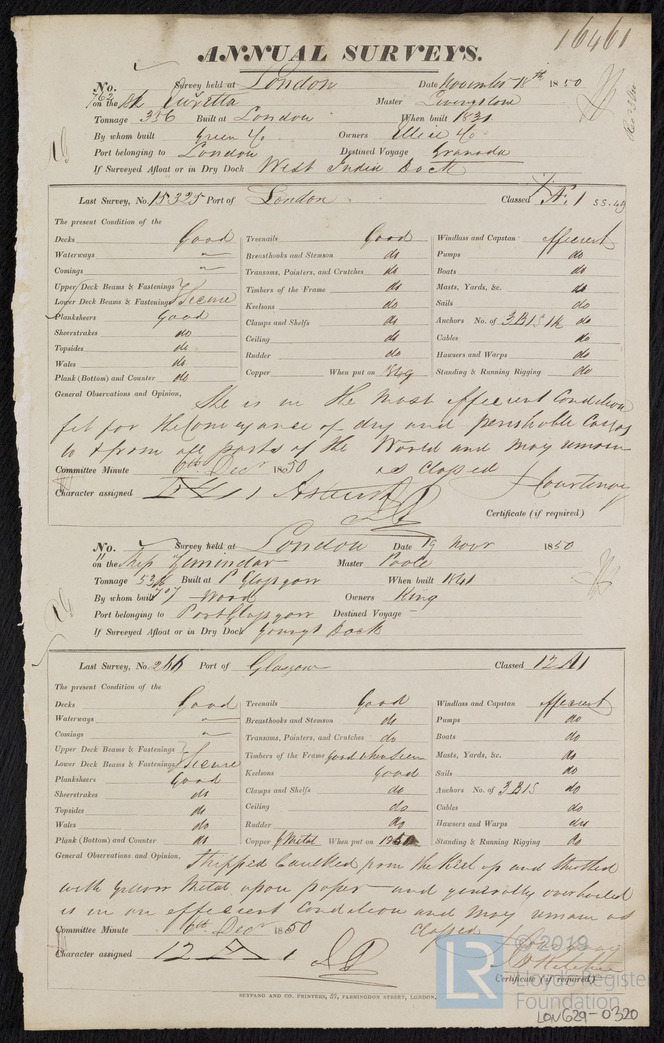 16461
ANNUAL SURVEYS.
No. Survey held at London Date November 18th 1850
on the Master Livingstone
Tonnage 356 Built at London When built 1831
By whom built Green & Co. Owners & Co.
Port belonging to London Destined Voyage Granada
If Surveyed Afloat or in Dry Dock West India Dock
Last Survey, No. 15325 Port of London Classed Æ 1 SS. 49
The present Condition of the
Decks Good Treenails Good Windlass and Capstan efficient
Waterways " Breasthooks and Stemson do Pumps do
Comings " Transoms, Pointers, and Crutches do Boats do
Upper Deck Beams & Fastenings Timbers of the Frame do Masts, Yards, &c. do
Lower Deck Beams & Fastenings Secure Keelsons do Sails do
Planksheers Good Clamps and Shelfs do Anchors No. of 3.B 1 S 1 K do
Sheerstrakes do Ceiling do Cables do
Topsides do Rudder do Hawsers and Warps do
Wales do Copper When put on Standing & Running Rigging do
Plank (Bottom) and Counter do
General Observations and Opinion, She is in the most efficient Condition
fit for the Conveyance of dry and perishable Cargos
to & from all parts of the World and may remain
Committee Minute 6th Decr 1850 as Classed
Character assigned 1 Courtenay
Certificate (if required)
No. Survey held at London Date 19 Novr 1850
on the Ship Zemindar Master Poole
Tonnage Built at P Glasgow When built 1841
By whom built Wood Owners King
Port belonging to Port Glasgow Destined Voyage —
If Surveyed Afloat or in Dry Dock Youngs Dock
Last Survey, No. 266 Port of Glasgow Classed 12 A 1
The present Condition of the
Decks Good Treenails Good Windlass and Capstan efficient
Waterways " Breasthooks and Stemson do Pumps do
Comings " Transoms, Pointers, and Crutches do Boats do
Upper Deck Beams & Fastenings Timbers of the Frame Good when Seen Masts, Yards, &c. do
Lower Deck Beams & Fastenings Secure Keelsons Good Sails do
Planksheers Good Clamps and Shelfs do Anchors No. of 3 B 1 S do
Sheerstrakes do Ceiling do Cables do
Topsides do Rudder do Hawsers and Warps do
Wales do Copper Y Metal When put on 1850 Standing & Running Rigging do
Plank (Bottom) and Counter do
General Observations and Opinion, Stripped Caulked from the Keel up and Sheathed
with Yellow Metal upon paper and generally overhauled
is in an efficient Condition and may remain as
Committee Minute 6th Decr 1850 Classed
Character assigned 12 A 1
Certificate (if required)
SEYFANG AND CO. PRINTERS, 57, FARRINGDON STREET, LONDON.
LR © 2019
Lloyd's Register
Foundation
LON629-0320